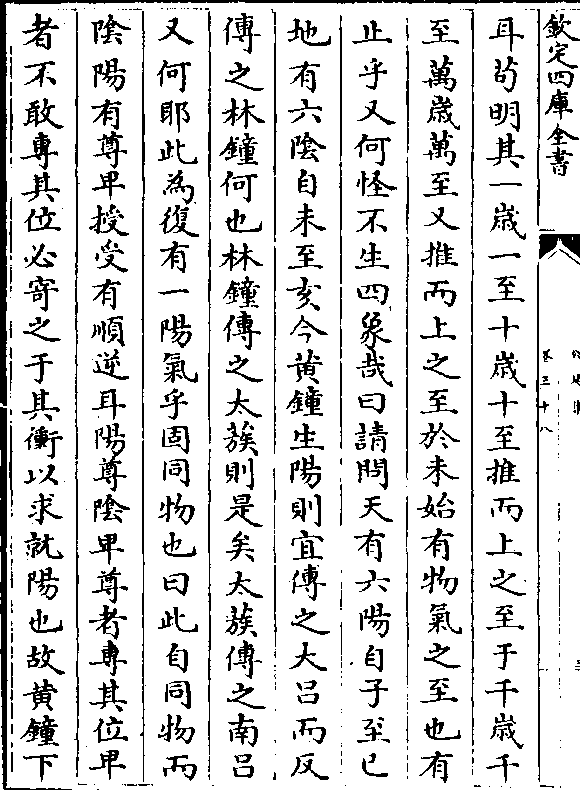 欽定四庫全書
卷三十八
耳茍明其一歳一至十歳十至推而上之至于千歳千
至萬歳萬至又推而上之至於未始有物氣之至也有
止乎又何怪不生四象哉曰請問天有六陽自子至已
地有六陰自未至亥今黄鐘生陽則宜傳之大吕而反
傳之林鐘何也林鐘傳之太蔟則是矣太蔟傳之南吕
又何耶此為復有一陽氣乎固同物也曰此自同物而
陰陽有尊卑授受有順逆耳陽尊陰卑尊者專其位卑
者不敢專其位必寄之于其衝以求就陽也故黄鐘下